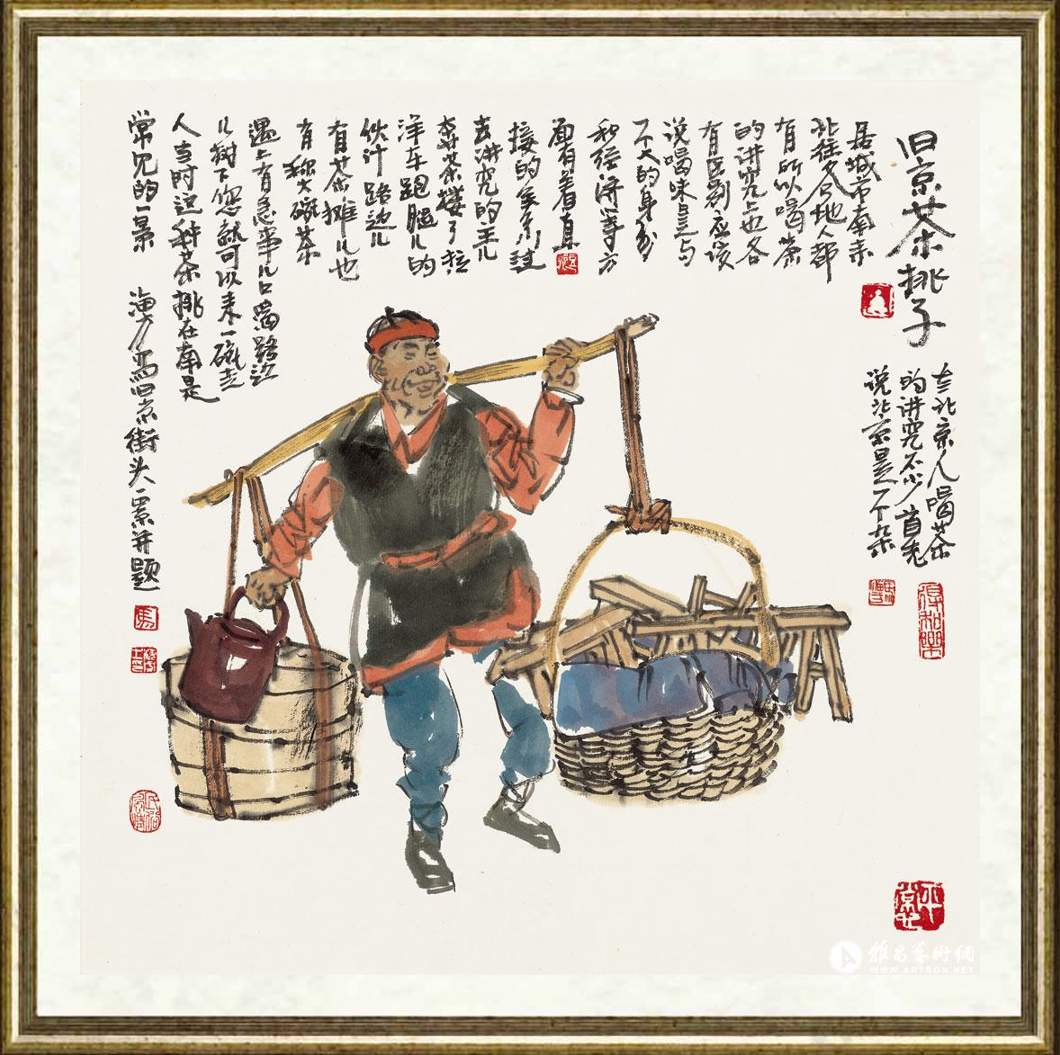 旧京茶挑子
老北京人喝茶
的讲究不少首先
说北京是一个杂
居城市南来
北往各地人都
有所以喝茶
的讲究上也各
有区别应该
说喝味是与
不大的身份
和经济等方
面有着直
接的关系过
去讲究的主儿
奔茶楼了拉
洋车跑腿儿的
伙计路边儿
有茶摊儿也
有称大碗茶
遇上有急事儿口渴路边
儿树下您就可以来一碗走
人当时这种茶挑在南是
常见的一景
海方写旧京街头一景并题
马
雅昌藝術網
WWW.ARTRON.NET